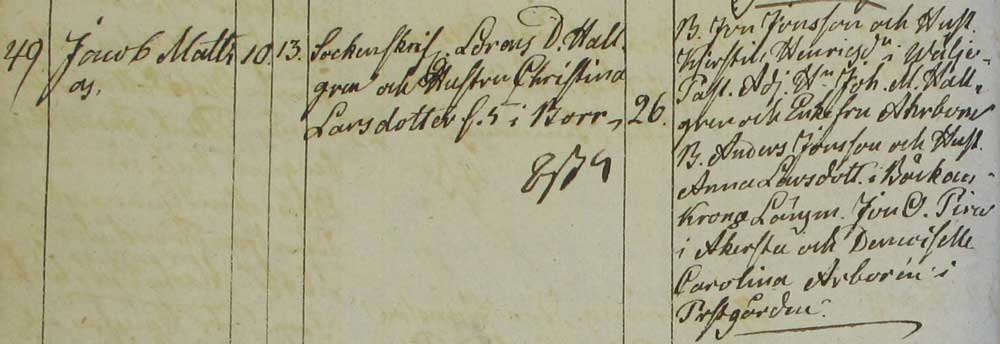 49. Jacob Matts 10. 13. Sockenskrif. Lorens D. Hall-
as. gren och Hustru Christina
Larsdotter f. 5 i Berr 26.
B. Jon Jönsson och Hust.
Kierstin Henricsdr i Welje
Past. Adj. Hr. Joh. M. Häll-
gren och Enkefru Ahrboren
B. Anders Jönsson och Hust.
Anna Larsdott. i Bäckan
Krono Länsm. Jon O. Pira
i Akersta och Demoiselle
Carolina Arborén i
Prstgården.